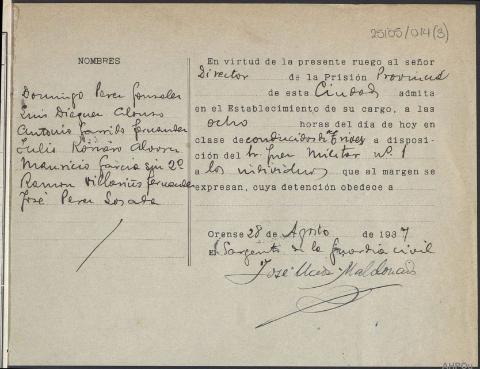 25/05/014(3)
NOMBRES
Domingo Perez Gonzalez
Luis Dieguez Alonso
Antonio Garrido Fernandez
Julio Román Alvarez
Mauricio Garcia sin 2º
Ramon Villarius Fernandez
José Perez Losada
En virtud de la presente ruego al señor
Director de la Prisión Provincial
de esta Ciudad admita
en el Establecimiento de su cargo, a las
ocho horas del día de hoy en
clase de conducidos a disposi-
ción del Sr. Juez Militar nº. 1
a los individuos que al margen se
expresan, cuya detención obedece a
Orense 28 de Agosto de 1937
El Sargento de la Guardia civil
José Maldonado
AHPOu